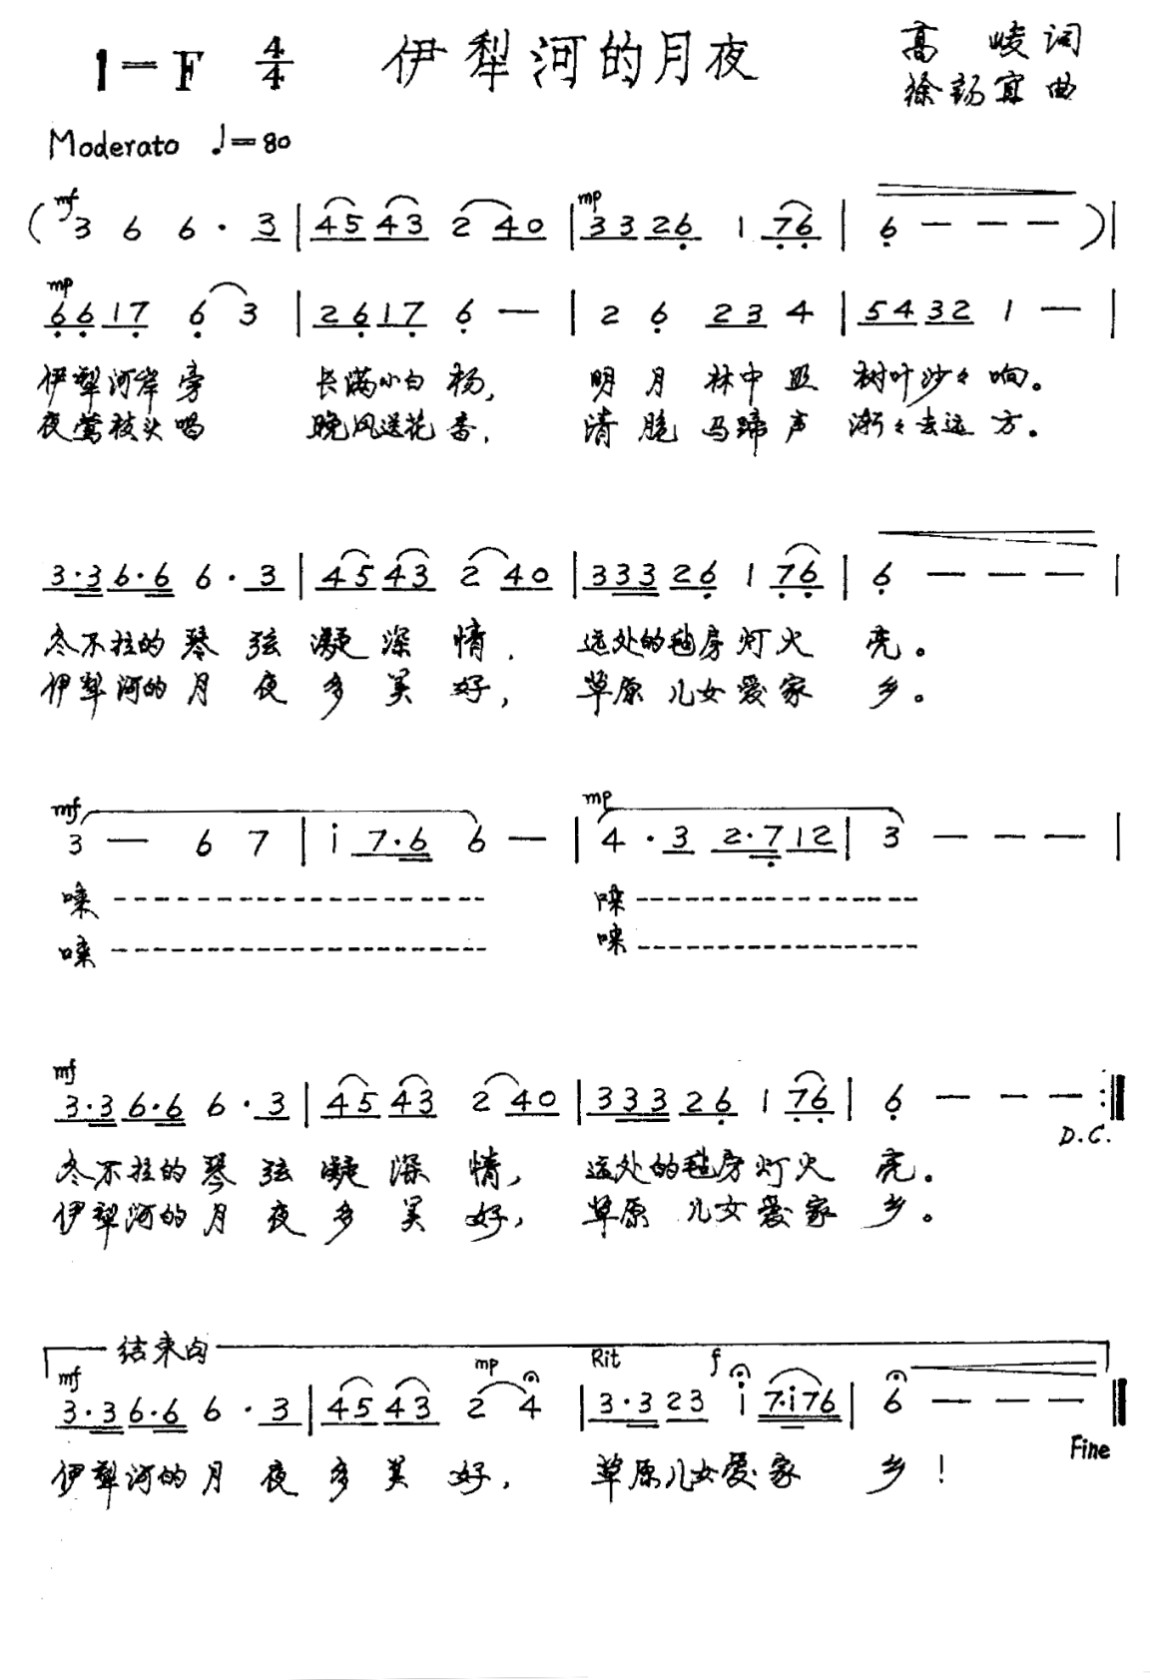 1=F 4/4 伊犁河的月夜 高峻词
徐锡宜曲
Moderato ♩=80
mf mp
( 3 6 6 · 3 | 45 43 2 40 | 33 26 1 76 | 6 — — — ) |
mp
66 17 6 3 | 26 17 6 — | 2 6 23 4 | 54 32 1 — |
伊犁河岸旁 长满小白杨, 明月林中照 树叶沙々响。
夜莺枝头唱 晚风送花香, 清脆马蹄声 渐々去远方。
3·3 6·6 6 · 3 | 45 43 2 40 | 333 26 1 76 | 6 — — — |
冬不拉的琴弦凝深情, 远处的毡房灯火亮。
伊犁河的月夜多美好, 草原儿女爱家乡。
mf mp
3 — 6 7 | i 7·6 6 — | 4 · 3 2·7 12 | 3 — — — |
唻 ------ 唻 ------
唻 ------ 唻 ------
mf
3·3 6·6 6 · 3 | 45 43 2 40 | 333 26 1 76 | 6 — — — :‖
D.C.
冬不拉的琴弦凝深情, 远处的毡房灯火亮。
伊犁河的月夜多美好, 草原儿女爱家乡。
结束句
mf mp Rit f
3·3 6·6 6 · 3 | 45 43 2 4 | 3·3 23 i 7·i76 | 6 — — — ‖
Fine
伊犁河的月夜多美好, 草原儿女爱家乡!